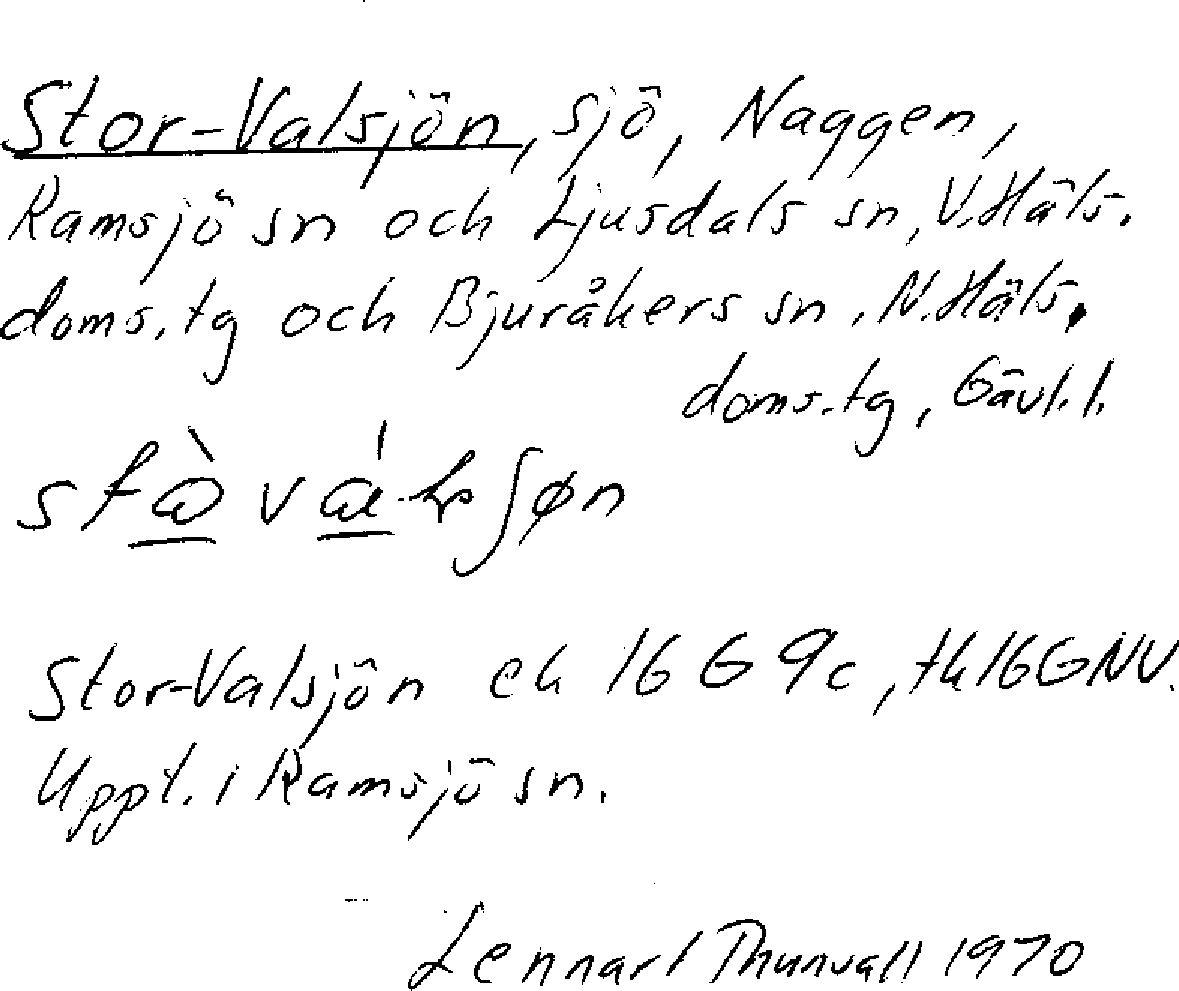 Stor-Valsjön, sjö, Naggen,
Ramsjö sn och Ljusdals sn, V. Häls.
doms.tg och Bjuråkers sn, N. Häls.
doms.tg, Gävl.l.
Stor-Valsjön ek 16 G 9c, tk 16 G NV.
Uppt. i Ramsjö sn.
Lennart Thunvall 1970